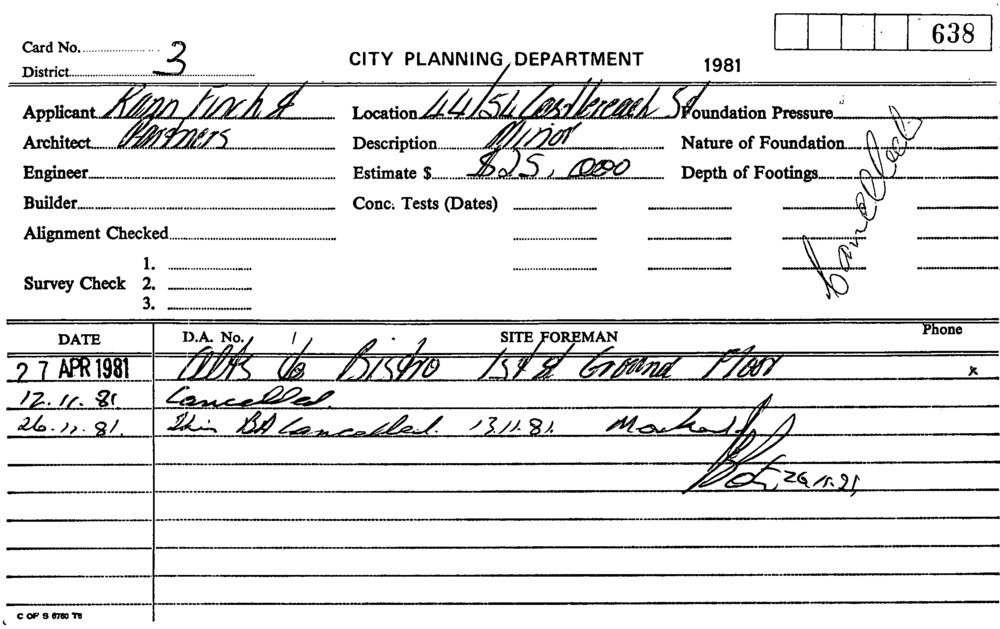 638
Card No.
District 3
CITY PLANNING DEPARTMENT 1981
Applicant Kann Finch & Location 44/54 Castlereagh St Foundation Pressure
Architect Partners Description Minor Nature of Foundation
Engineer Estimate $ $25,000 Depth of Footings
Builder Conc. Tests (Dates)
Cancelled.
Alignment Checked
1.
Survey Check 2.
3.
DATE D.A. No. SITE FOREMAN Phone
27 APR 1981 Alts to Bistro 1st & Ground Floor x
12.11.81 Cancelled.
26.11.81. This BA Cancelled. 13.11.81.
26.11.81,
C OF S 6780 T6